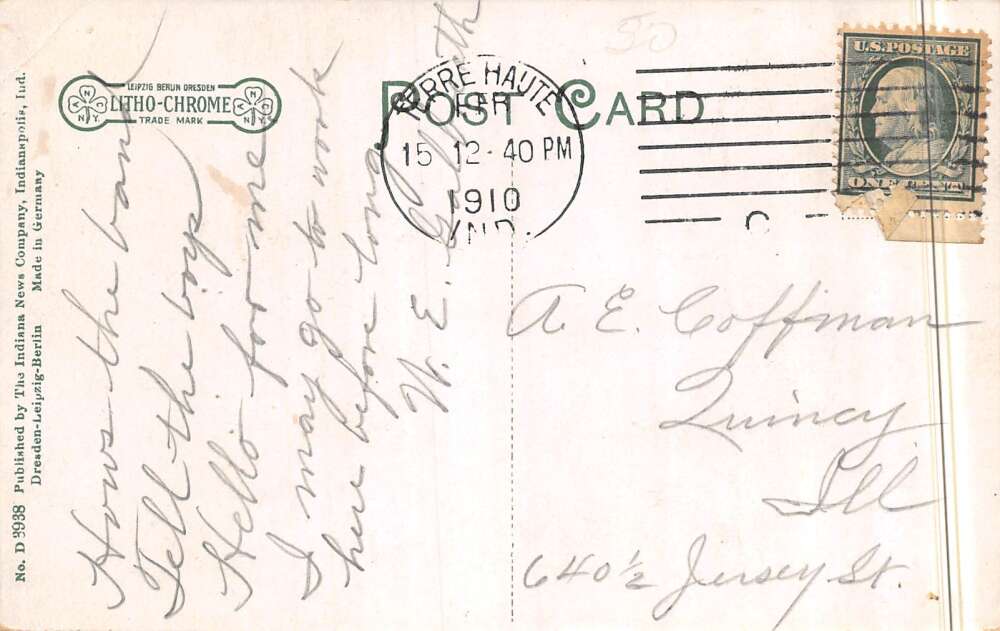 No. D 3938 Published by The Indiana News Company, Indianapolis, Ind.
Dresden-Leipzig-Berlin Made in Germany
LEIPZIG BERLIN DRESDEN
LITHO-CHROME
TRADE MARK
N.
POST CARD
TERRE HAUTE
FEB
15 12-40 PM
1910
IND.
U.S. POSTAGE
Hows the band
Tell the boys
Hello for me
I may go to work
here before long
W. E.
A. E. Coffman
Quincy
Ill
640 1/2 Jersey St.